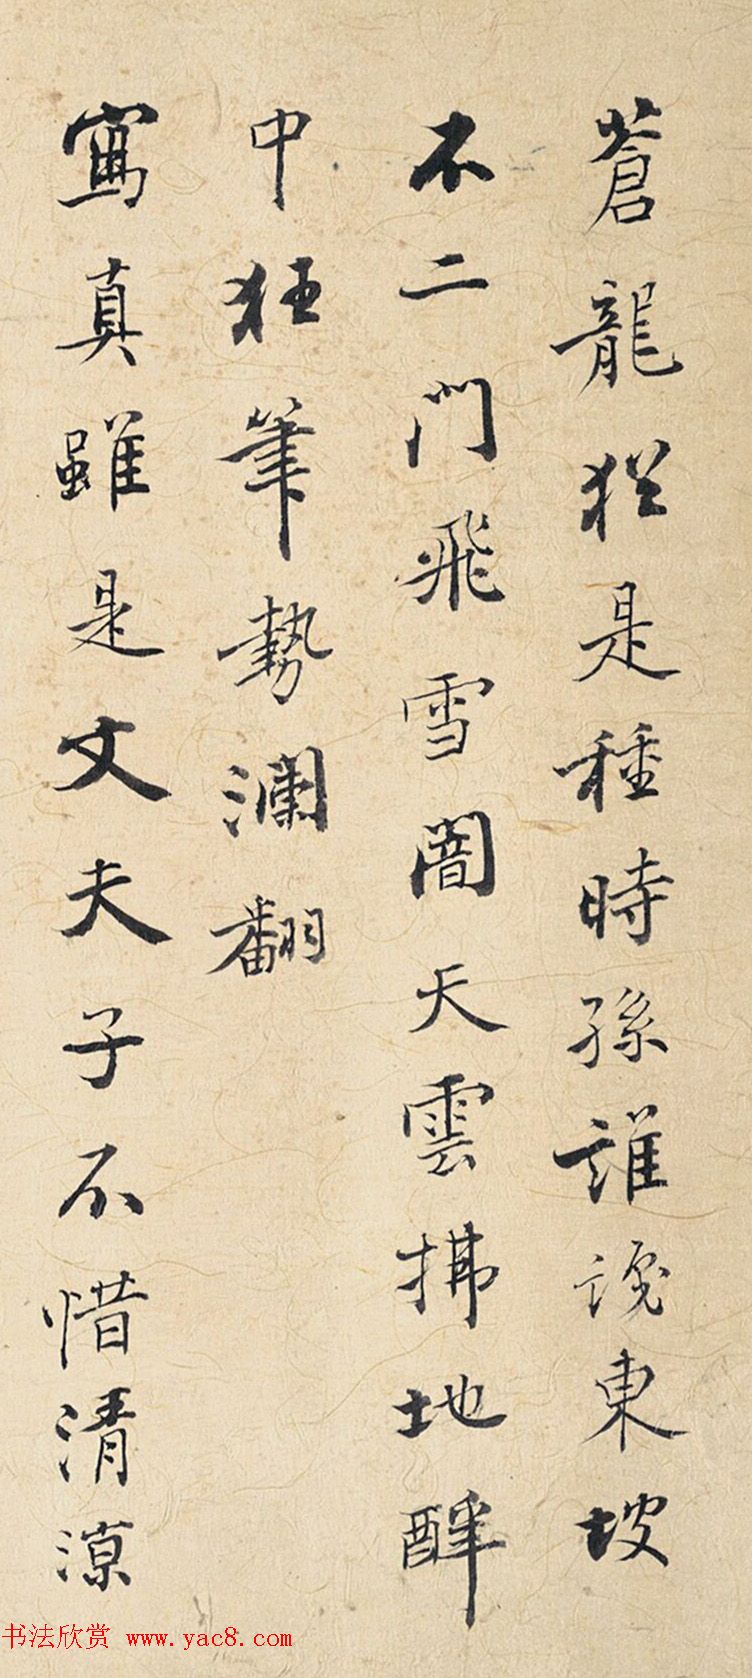 蒼龍猶是種時孫誰説東坡
不二門飛雪闇天雲拂地醉
中狂筆勢瀾翻
寫真雖是文夫子不惜清涼
书法欣赏 www.yac8.com